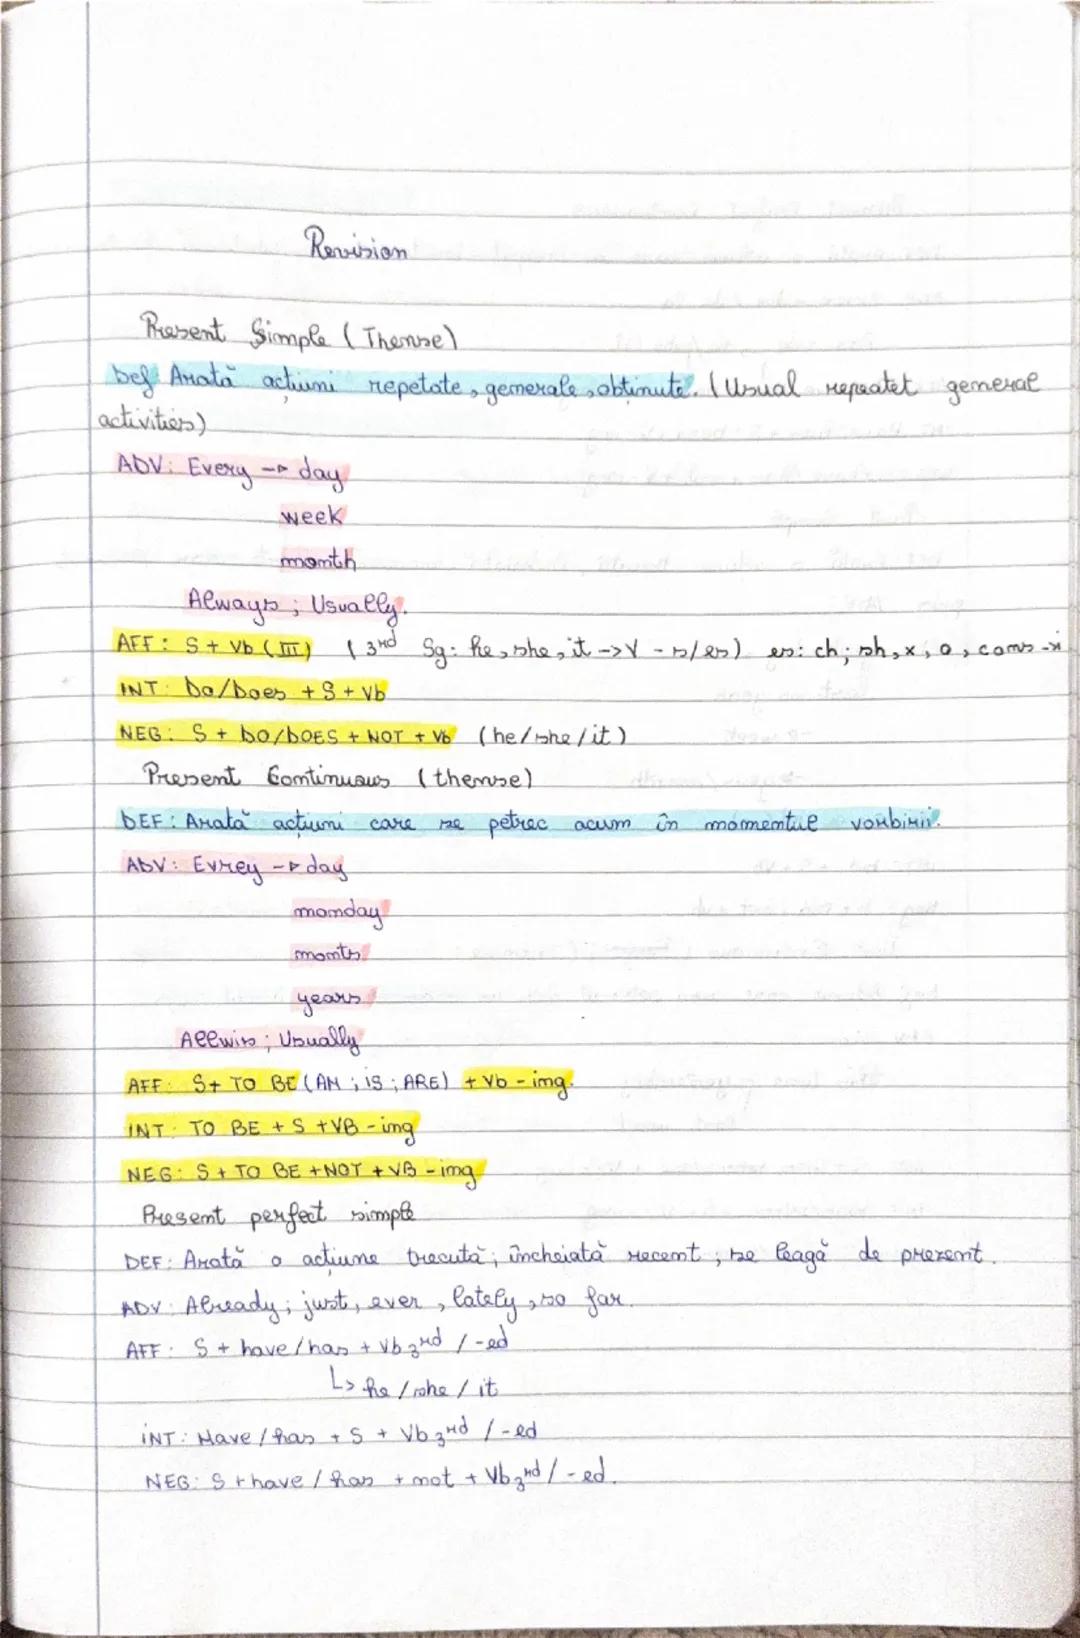 Revision
Present Simple (Thense)
Def Arată acțiuni repetate, generale, obținute. (Usual repeatet general
activities)
ADV: Every → day
week
month
Always; Usually.
AFF: S + Vb (III) (3rd Sg: he, she, it -> V - s/es) es: ch; sh, x, o, cons -
INT: Do/Does + S + Vb
NEG: S + DO/DOES + NOT + Vb (he/she/it)
Present Continuous (thense)
DEF: Arată acțiuni care se petrec acum în momentul vorbirii.
ADV: Evrey → day
monday
monts
years
Allwis; Usually
AFF: S + TO BE (AM; IS; ARE) + Vb - ing.
INT: TO BE + S + VB - ing
NEG: S + TO BE + NOT + VB - ing
Present perfect simple
DEF: Arată o acțiune trecută; încheiată recent; se leagă de prezent.
ADV: Already; just, ever, lately, so far.
AFF: S + have/has + Vb 3rd / -ed
↳ he / she / it
INT: Have / has + S + Vb 3rd / -ed
NEG: S + have / has + not + Vb 3rd / -ed.